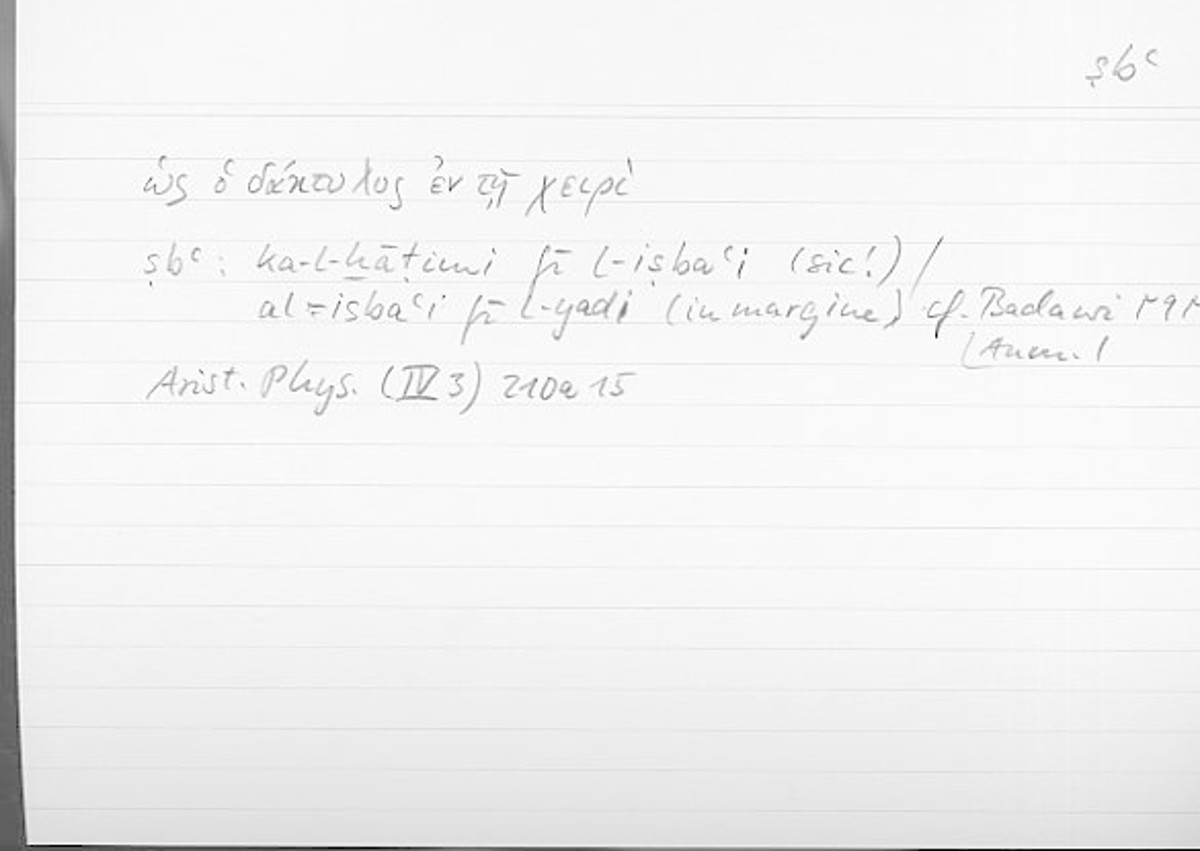 ṣbʿ
ὡς ὁ δάκτυλος ἐν τῇ χειρὶ
ṣbʿ: ka-l-ḫāṭimi fī l-iṣbaʿi (sic!) /
al-iṣbaʿi fī l-yadi (in margine) cf. Badawi
Anm. 1
Arist. Phys. (IV 3) 210a 15